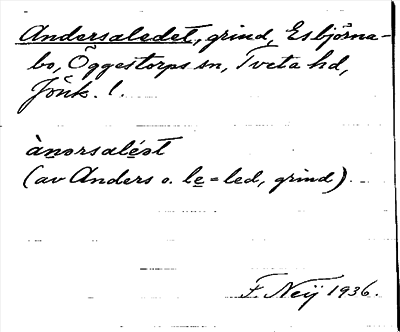 Andersaledet, grind, Esbjörna-
bo, Öggestorps sn, Tveta hd,
Jönk. l.
ànorsalést
(av Anders o. le = led, grind).
F. Neij 1936.